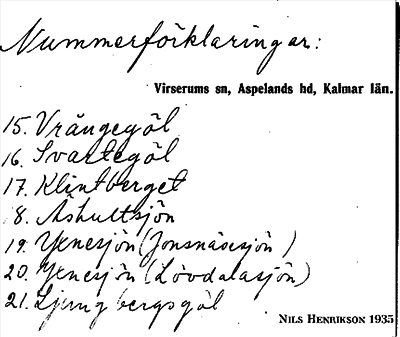 Nummerförklaringar:
Virserums sn, Aspelands hd, Kalmar län.
15. Vrångegöl
16. Svartegöl
17. Klintberget
18. Åshultsjön
19. Yenesjön (Jonsnäsesjön)
20. Yenesjön (Lövdalasjön)
21. Ljungbergsgöl
NILS HENRIKSON 1935